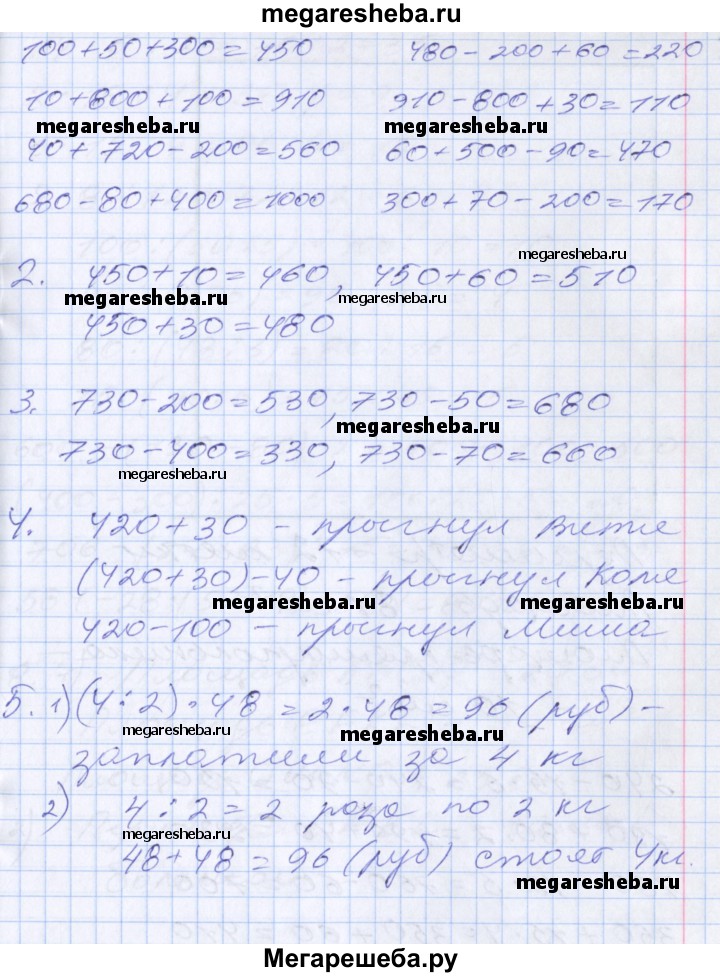 megaresheba.ru
100+50+300=450 480-200+60=220
10+800+100=910 910-800+30=110
megaresheba.ru megaresheba.ru
40+720-200=560 60+500-90=470
680-80+400=1000 300+70-200=170
megaresheba.ru
2. 450+10=460, 450+60=510
megaresheba.ru megaresheba.ru
450+30=480
3. 730-200=530, 730-50=680
megaresheba.ru
730-400=330, 730-70=660
megaresheba.ru
4. 420+30 - прыгнул Витя
(420+30)-40 - прыгнул Коля
megaresheba.ru megaresheba.ru
420-100 - прыгнул Миша
5. 1) (4:2)·48=2·48=96 (руб) -
megaresheba.ru megaresheba.ru
заплатили за 4 кг
2) 4:2=2 раза по 2 кг
megaresheba.ru
48+48=96 (руб) стоят 4 кг.
megaresheba.ru
Мегарешеба.ру